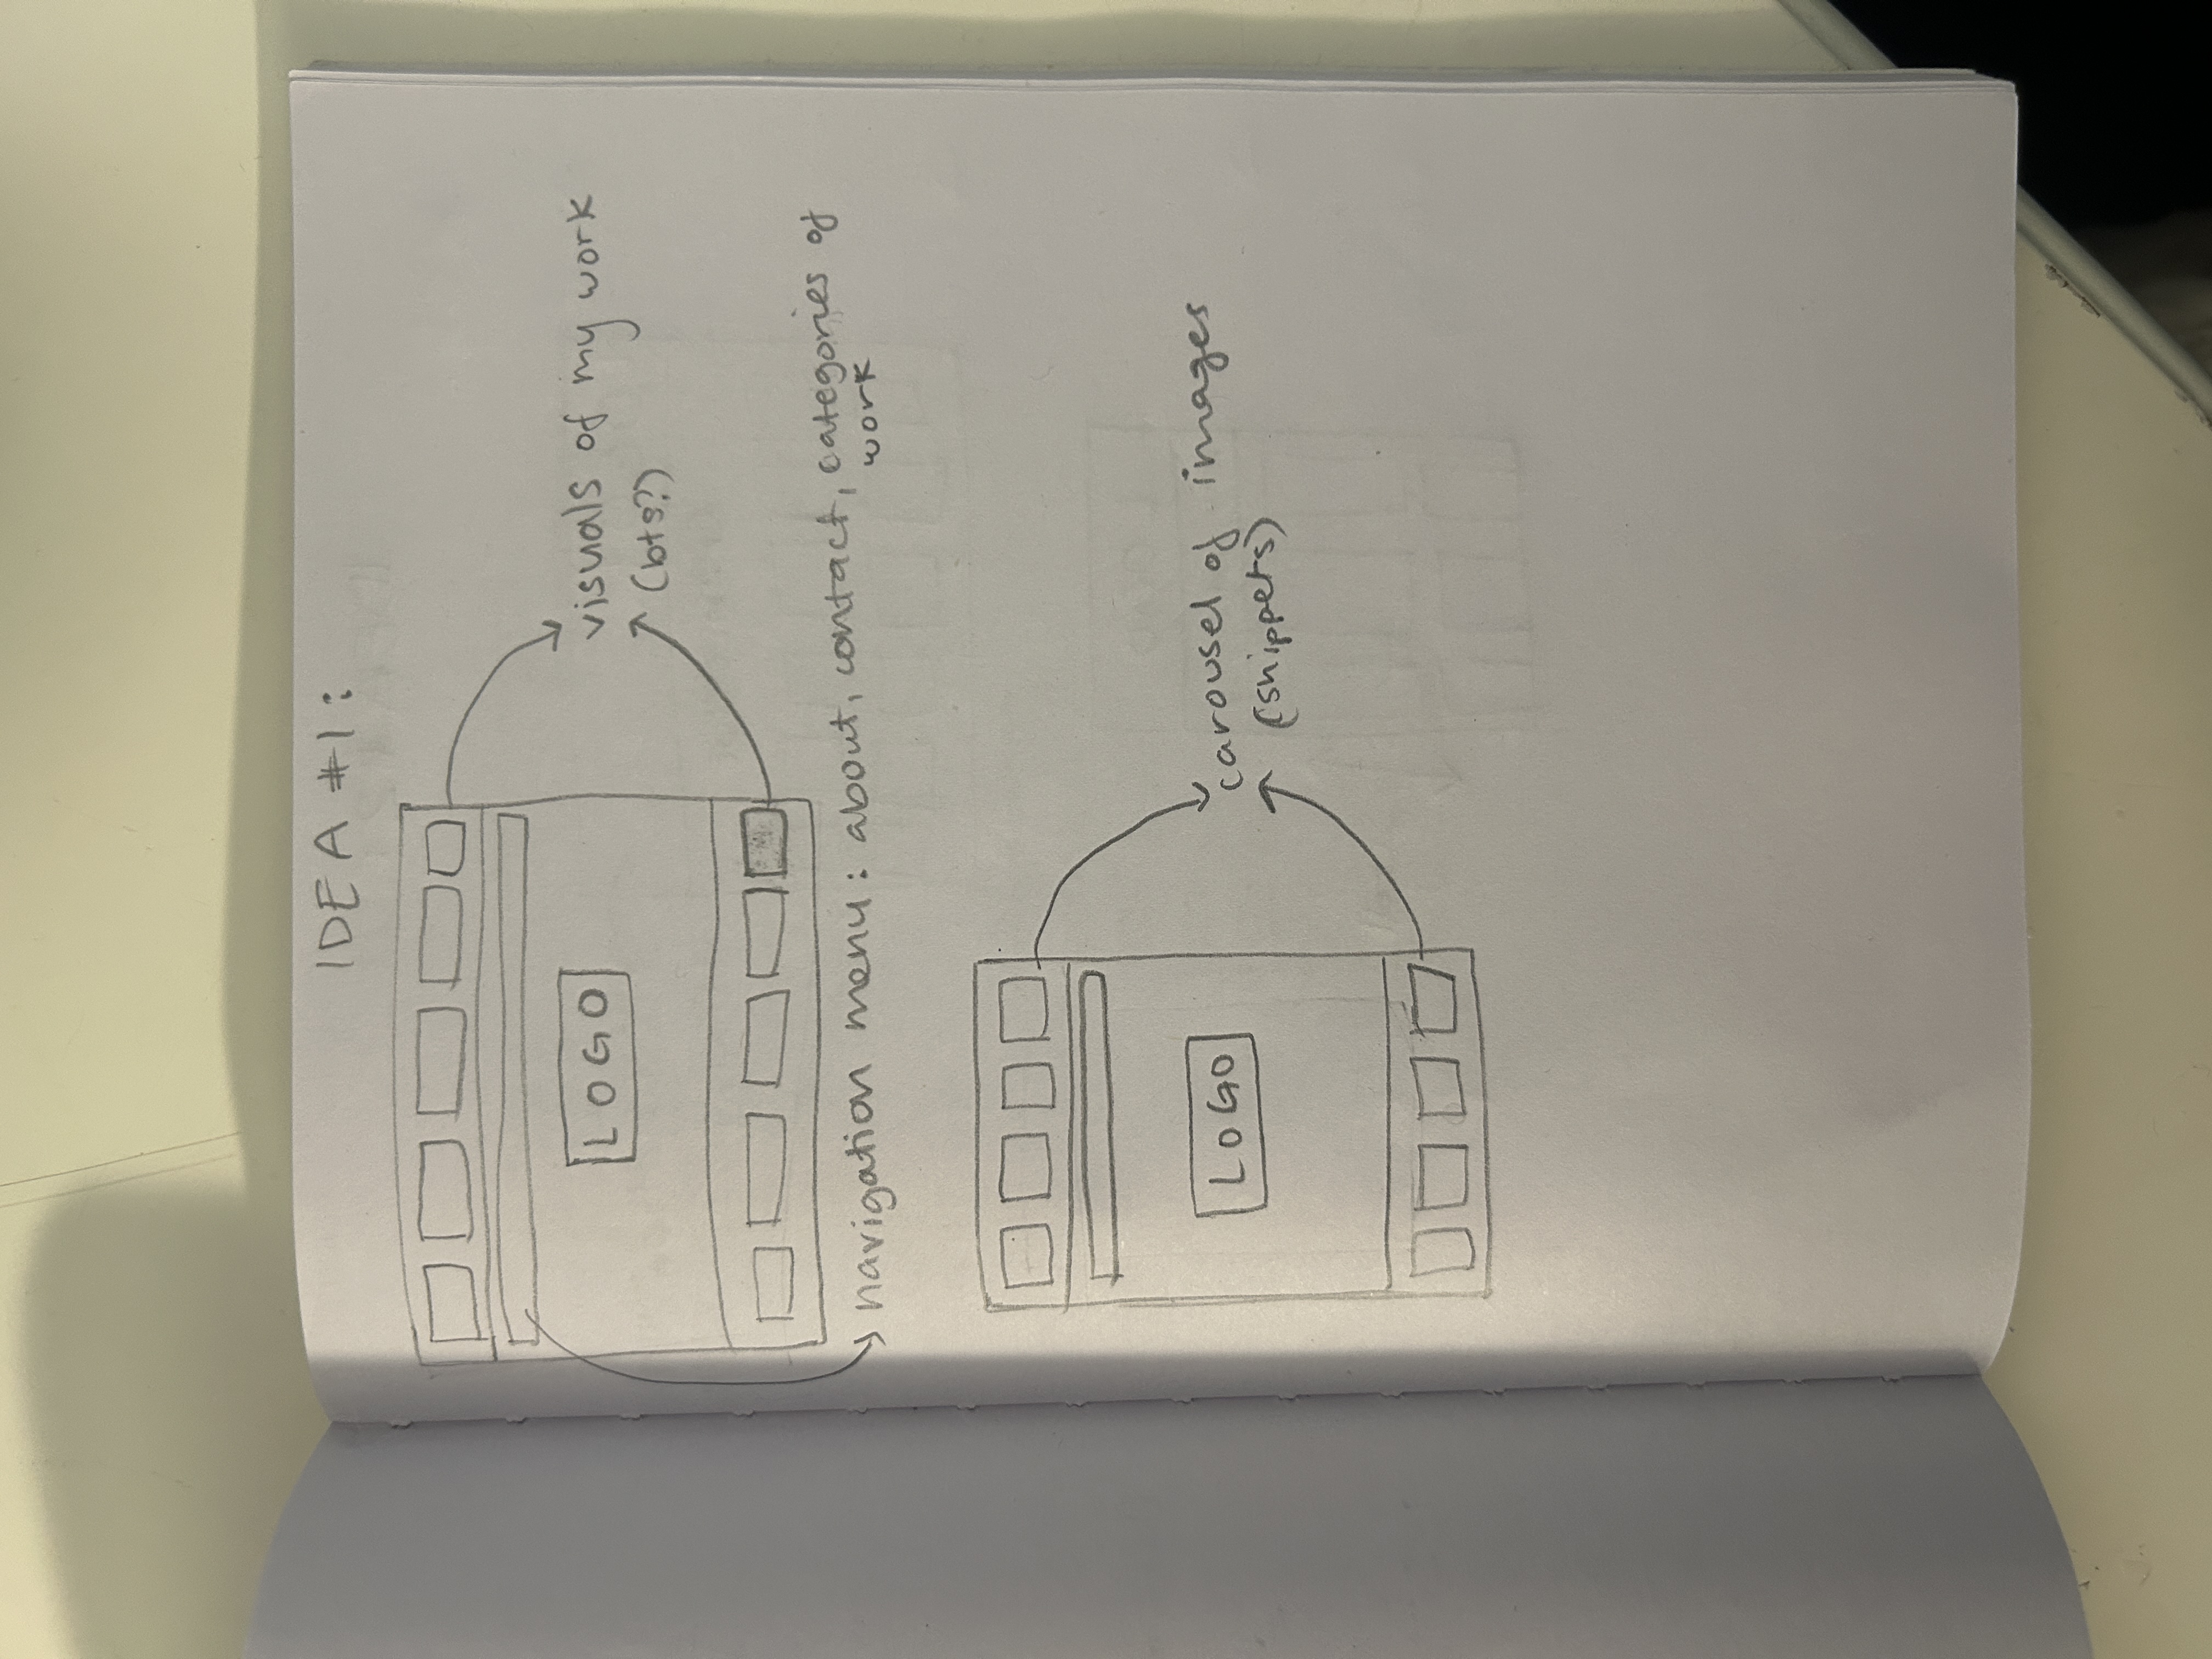 IDEA #1:
visuals of my work
(bts?)
LOGO
navigation menu: about, contact, categories of
work
carousel of images
(snippets)
LOGO